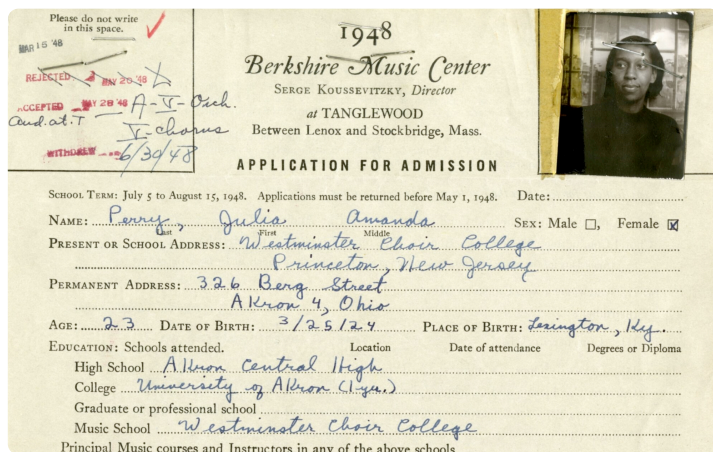 Please do not write
in this space.
MAR 15 '48
REJECTED MAY 20 '48
ACCEPTED MAY 28 '48 A-V-Orch.
aud. at. T V-chorus
WITHDREW 6/30/48
1948
Berkshire Music Center
SERGE KOUSSEVITZKY, Director
at TANGLEWOOD
Between Lenox and Stockbridge, Mass.
APPLICATION FOR ADMISSION
SCHOOL TERM: July 5 to August 15, 1948. Applications must be returned before May 1, 1948. Date:
NAME: Perry, Julia Amanda SEX: Male ☐, Female ☒
Last First Middle
PRESENT OR SCHOOL ADDRESS: Westminster Choir College
Princeton, New Jersey
PERMANENT ADDRESS: 326 Berg Street
Akron 4, Ohio
AGE: 23 DATE OF BIRTH: 3/25/24 PLACE OF BIRTH: Lexington, Ky.
EDUCATION: Schools attended. Location Date of attendance Degrees or Diploma
High School Akron Central High
College University of Akron (1 yr.)
Graduate or professional school
Music School Westminster Choir College
Principal Music courses and Instructors in any of the above schools